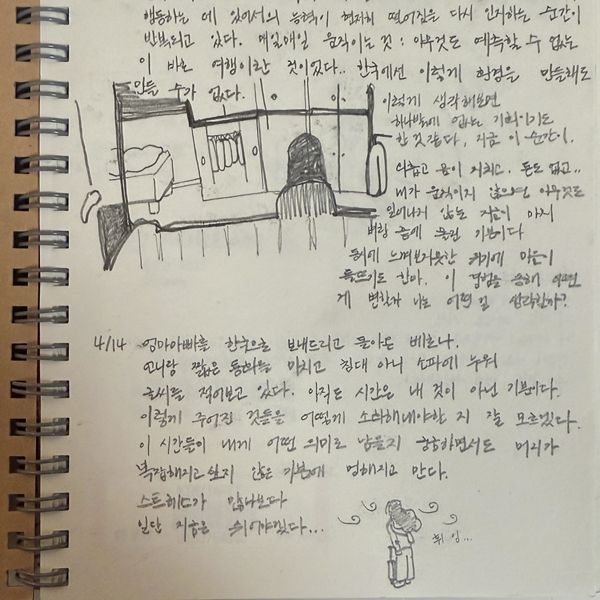 행동하는 데 있어서의 능력이 현저히 떨어짐을 다시 인지하는 순간이
반복되고 있다. 매일매일 움직이는 것 : 아무것도 예측할 수 없는
이 바로 여행이란 것이었다.. 한국에선 이렇게 환경을 만들래도
만들 수가 없다.
이렇게 생각해보면
하나밖에 없는 기회이기도
한 것 같다, 지금 이 순간이.
의춥고 몸이 지치고. 돈도 없고..
내가 움직이지 않으면 아무것도
일어나지 않는 지금이 마치
벼랑 끝에 몰린 기분이다
느껴보지못한 마음이
이 경험을 통해 어떤
게 변할까 나는 어떤 걸 생각할까?
4/14 엄마아빠를 한국으로 보내드리고 돌아온 베로나.
언니랑 짧은 통화를 마치고 침대 아니 소파에 누워
글씨를 적어보고 있다. 아직도 시간은 내 것이 아닌 기분이다.
이렇게 주어진 것들을 어떻게 소화해내야한 지 잘 모르겠다.
이 시간들이 내게 어떤 의미로 남을지 궁금하면서도 머리가
복잡해지고 싶지 않은 기분에 멍해지고 만다.
스트레스가 많나보다
일단 지금은 쉬어야겠다...
휘잉...